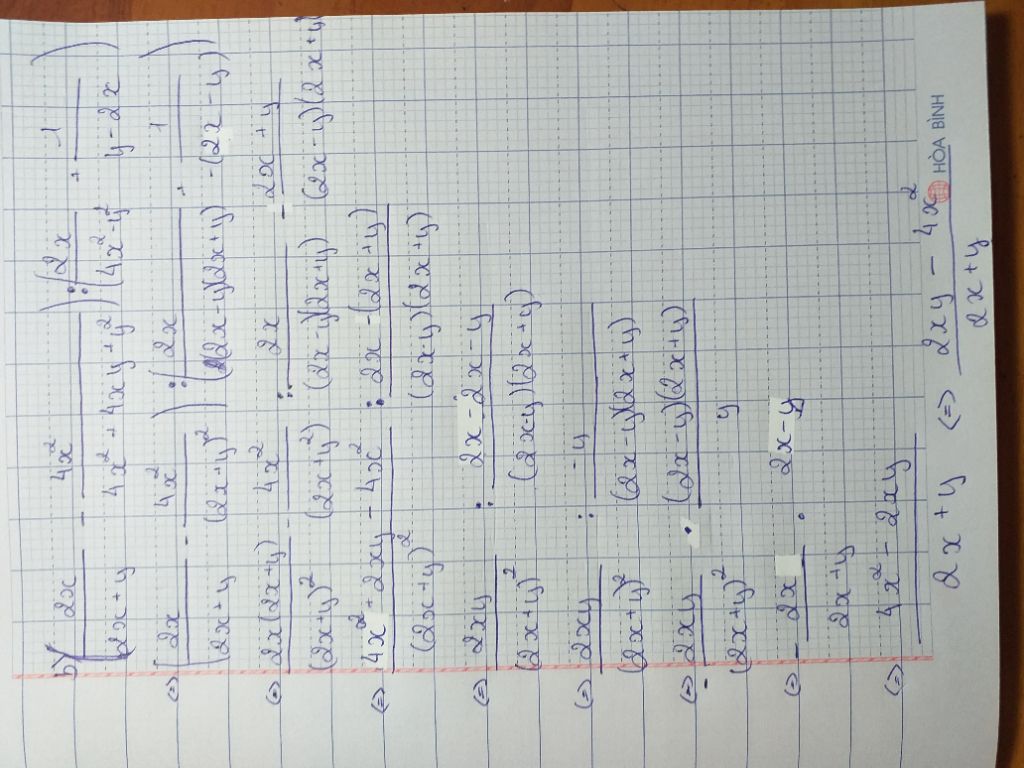 b) (2x/(2x+y) - 4x²/(4x²+4xy+y²)) : (2x/(4x²-y²) + 1/(y-2x))
(=) (2x/(2x+y) - 4x²/(2x+y)²) : (2x/((2x-y)(2x+y)) + 1/(-(2x-y)))
(=) 2x(2x+y)/(2x+y)² - 4x²/(2x+y²) : 2x/((2x-y)(2x+y)) - 2x+y/((2x-y)(2x+y)
(=) 4x²+2xy-4x²/(2x+y)² : 2x-(2x+y)/((2x-y)(2x+y))
(=) 2xy/(2x+y)² : 2x-2x-y/((2x-y)(2x+y))
(=) 2xy/(2x+y)² : -y/((2x-y)(2x+y))
(=) - 2xy/(2x+y)² . (2x-y)(2x+y)/y
(=) - 2x/(2x+y) . 2x-y
(=) 4x²-2xy/(2x+y) (=) 2xy-4x²/(2x+y)
HÒA BÌNH